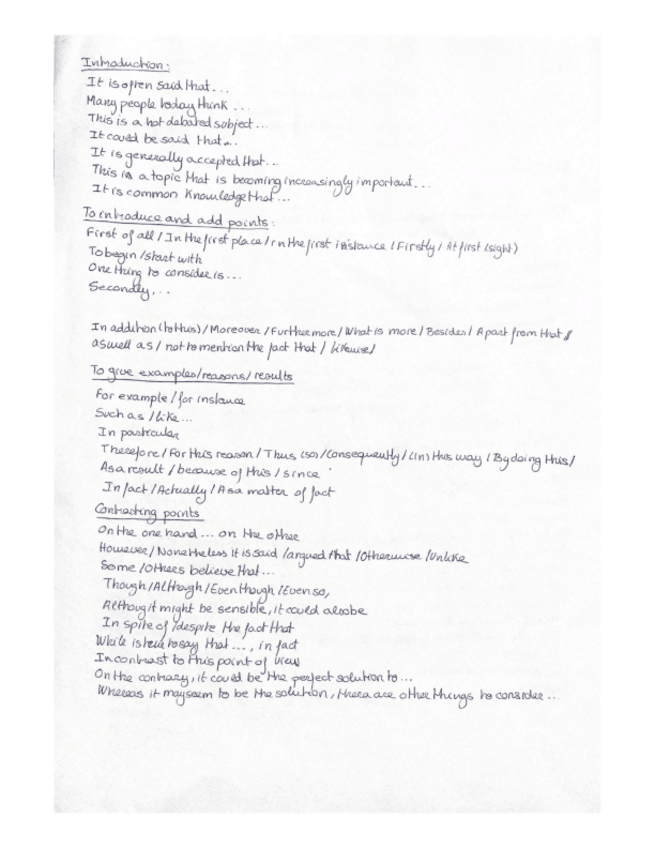 Introduction:
It is often said that...
Many people today think ...
This is a hot debated subject...
It could be said that...
It is generally accepted that...
This is a topic that is becoming increasingly important...
It is common knowledge that...
To introduce and add points:
First of all / In the first place / in the first instance / Firstly / At first (sight)
To begin / start with
One thing to consider is...
Secondly...
In addition (to this) / Moreover / Furthermore / What is more / Besides / Apart from that /
as well as / not to mention the fact that / likewise /
To give examples/reasons/results
For example / for instance
Such as / like...
In particular
Therefore / For this reason / Thus (so) / Consequently / (in) this way / By doing this /
As a result / because of this / since
In fact / Actually / As a matter of fact
Contrasting points
On the one hand ... on the other
However / Nonetheless it is said / argued that / Otherwise / Unlike
Some / Others believe that...
Though / Although / Even though / Even so,
Althoug it might be sensible, it could also be
In spite of / despite the fact that
While is true to say that ..., in fact
In contrast to this point of view
On the contrary, it could be the perfect solution to...
Whereas it may seem to be the solution, there are other things to consider...